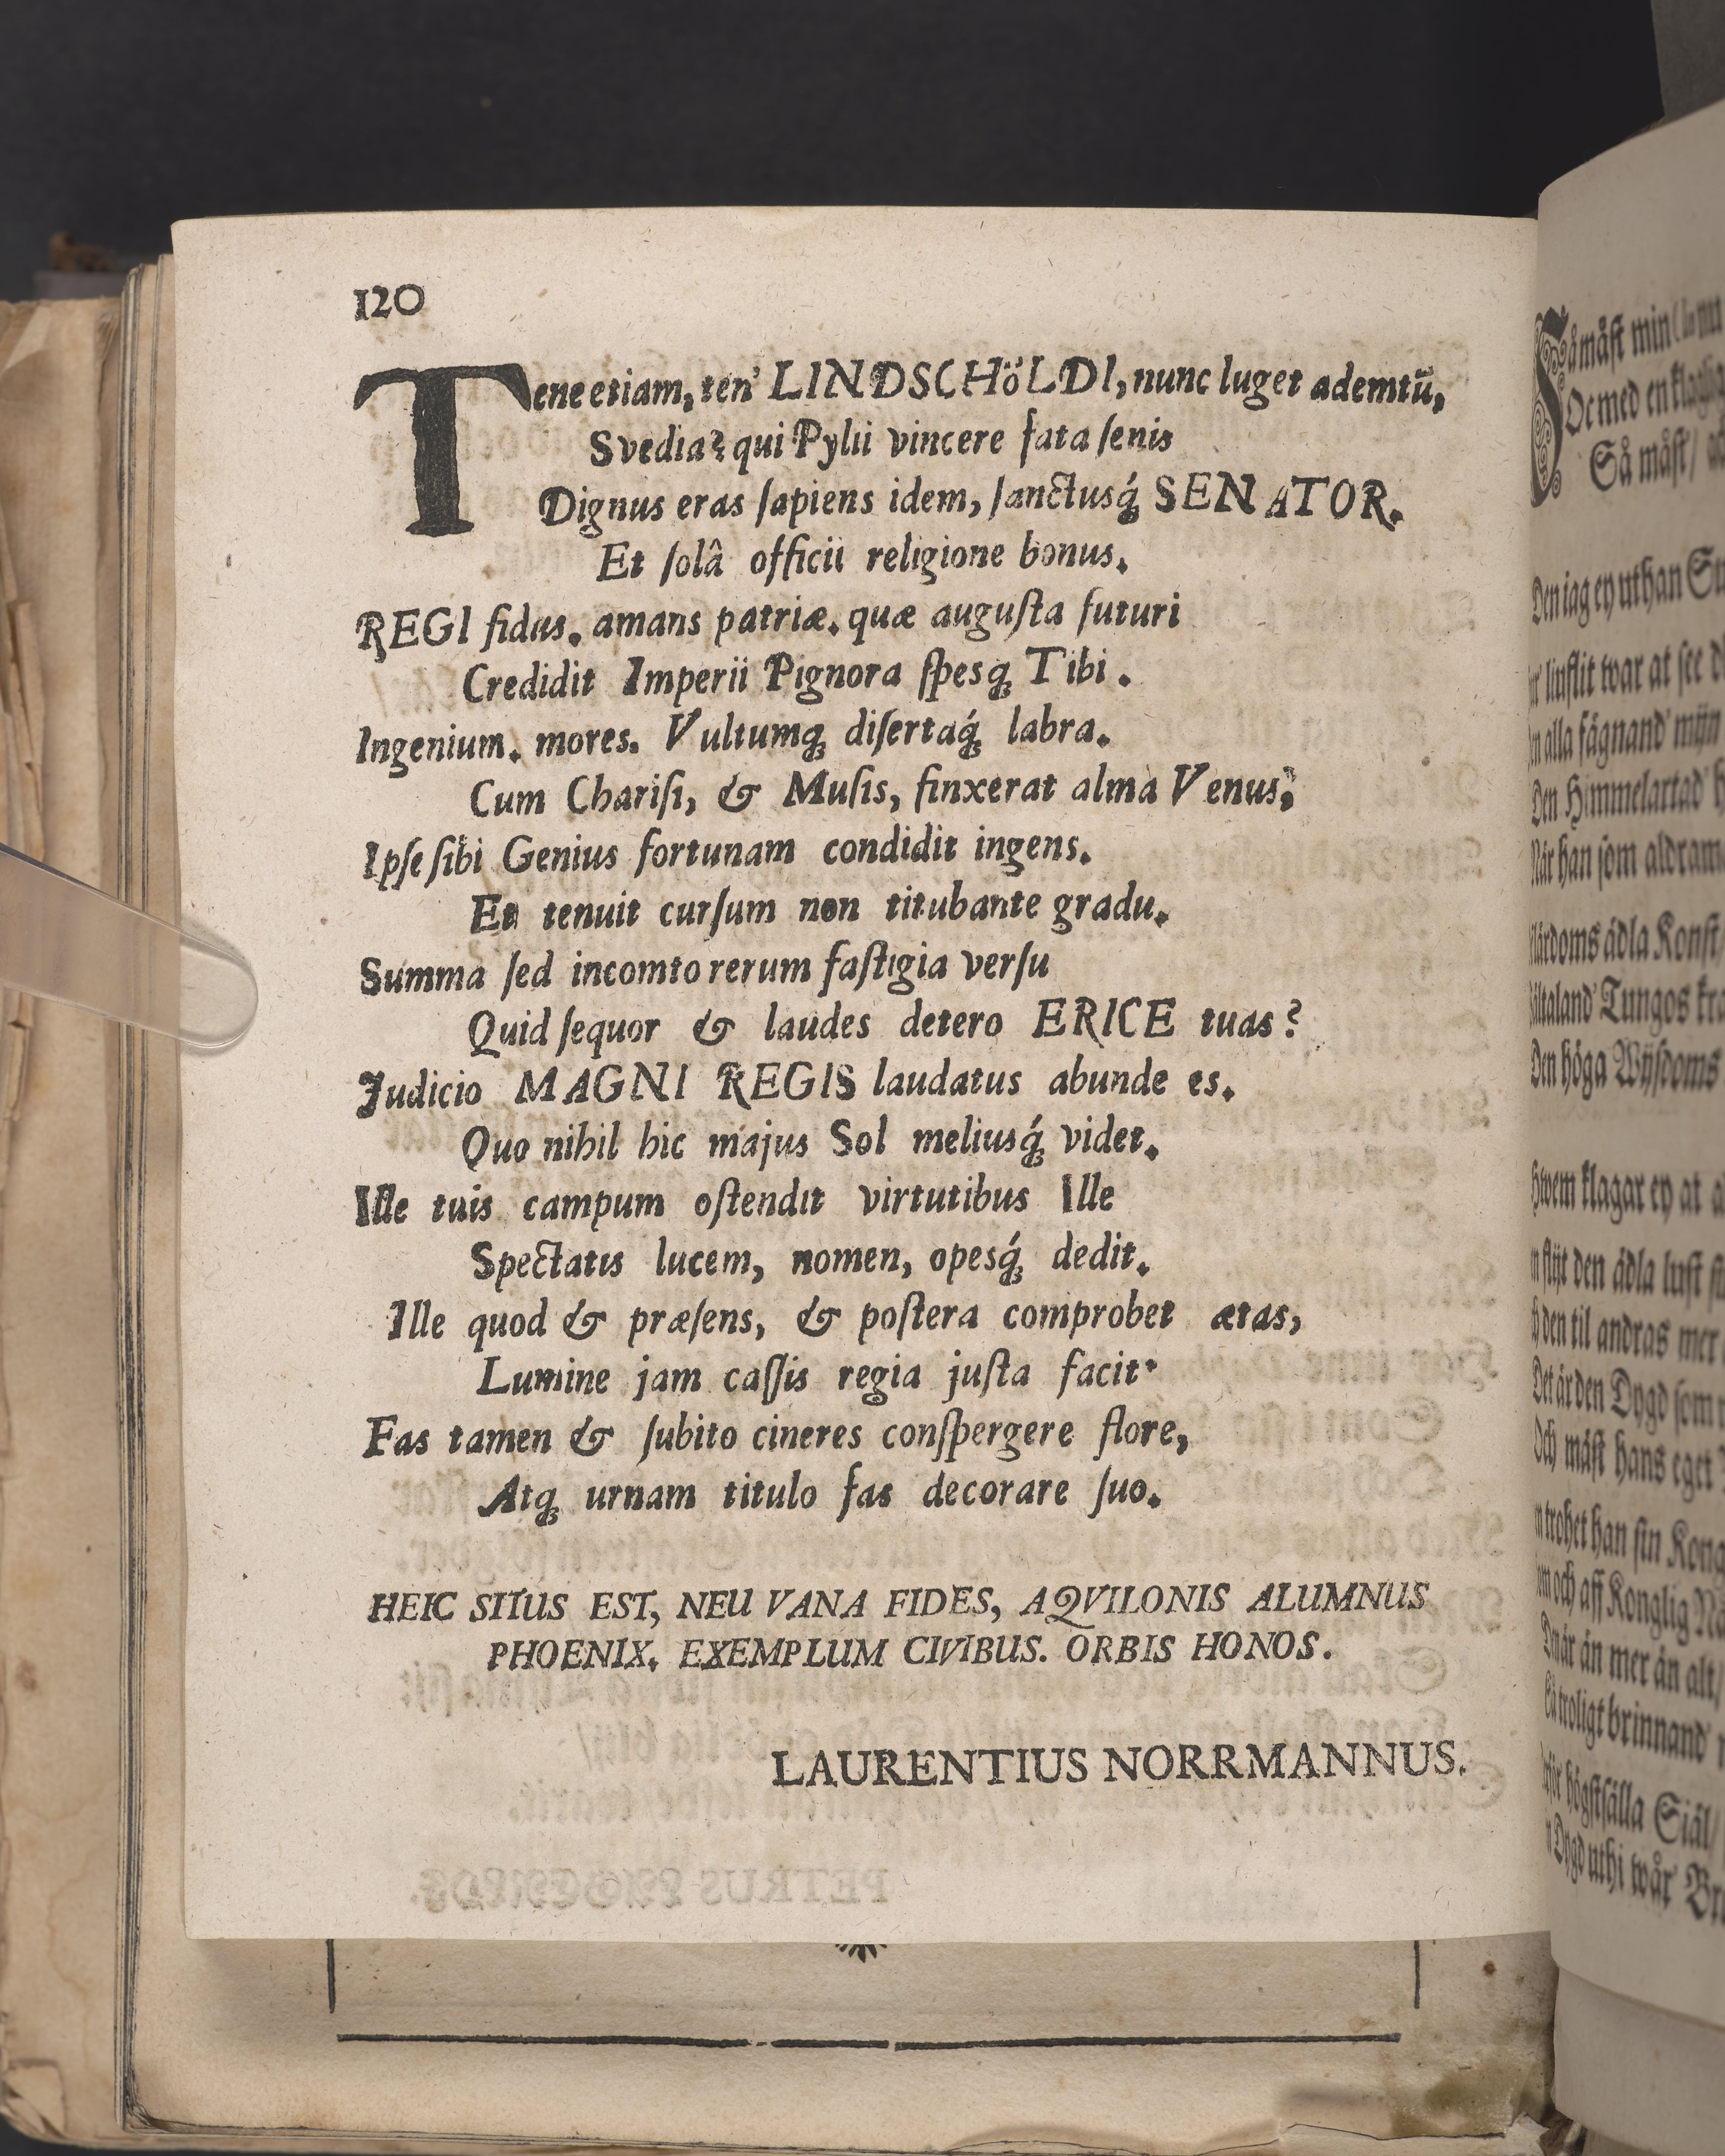 120
Tene etiam, ten' LINDSCHöLDI, nunc luget ademtū,
Svedia? qui Pylii vincere fata ſenis
Dignus eras ſapiens idem, ſanctusq́; SENATOR.
Et ſolâ officii religione bonus.
REGI fidus. amans patriæ. quæ auguſta futuri
Credidit Imperii Pignora ſpesq; Tibi.
Ingenium. mores. Vultumq; diſertaq́; labra.
Cum Chariſi, & Muſis, finxerat alma Venus;
Ipſe ſibi Genius fortunam condidit ingens.
Et tenuit curſum non titubante gradu.
Summa ſed incomto rerum faſtigia verſu
Quid ſequor & laudes detero ERICE tuas?
Judicio MAGNI REGIS laudatus abunde es.
Quo nihil hic majus Sol meliusq́; videt.
Ille tuis campum oſtendit virtutibus Ille
Spectatis lucem, nomen, opesq́; dedit.
Ille quod & præſens, & poſtera comprobet ætas,
Lumine jam caſſis regia juſta facit·
Fas tamen & ſubito cineres conſpergere flore,
Atq; urnam titulo fas decorare ſuo.
HEIC SITUS EST, NEU VANA FIDES, AQVILONIS ALUMNUS
PHOENIX. EXEMPLUM CIVIBUS. ORBIS HONOS.
LAURENTIUS NORRMANNUS.
åmåſt min
Oc med en
Så måſt/
Den iag ey uthan
liuflit war at ſee
alla fägnand' mijn
Den Himmelartad'
När han ſom aldram
ädla Konſt
Tungos
Den höga Wijſdoms
Hwem klagar ey at
den ädla luſt
den til andras mer
Det är den Dygd ſom
Och måſt hans eget
trohet han ſin
och aff Konglig
än mer än alt/
troligt brinnand'
högſtſälla Siäl/
Dygd uthi wår